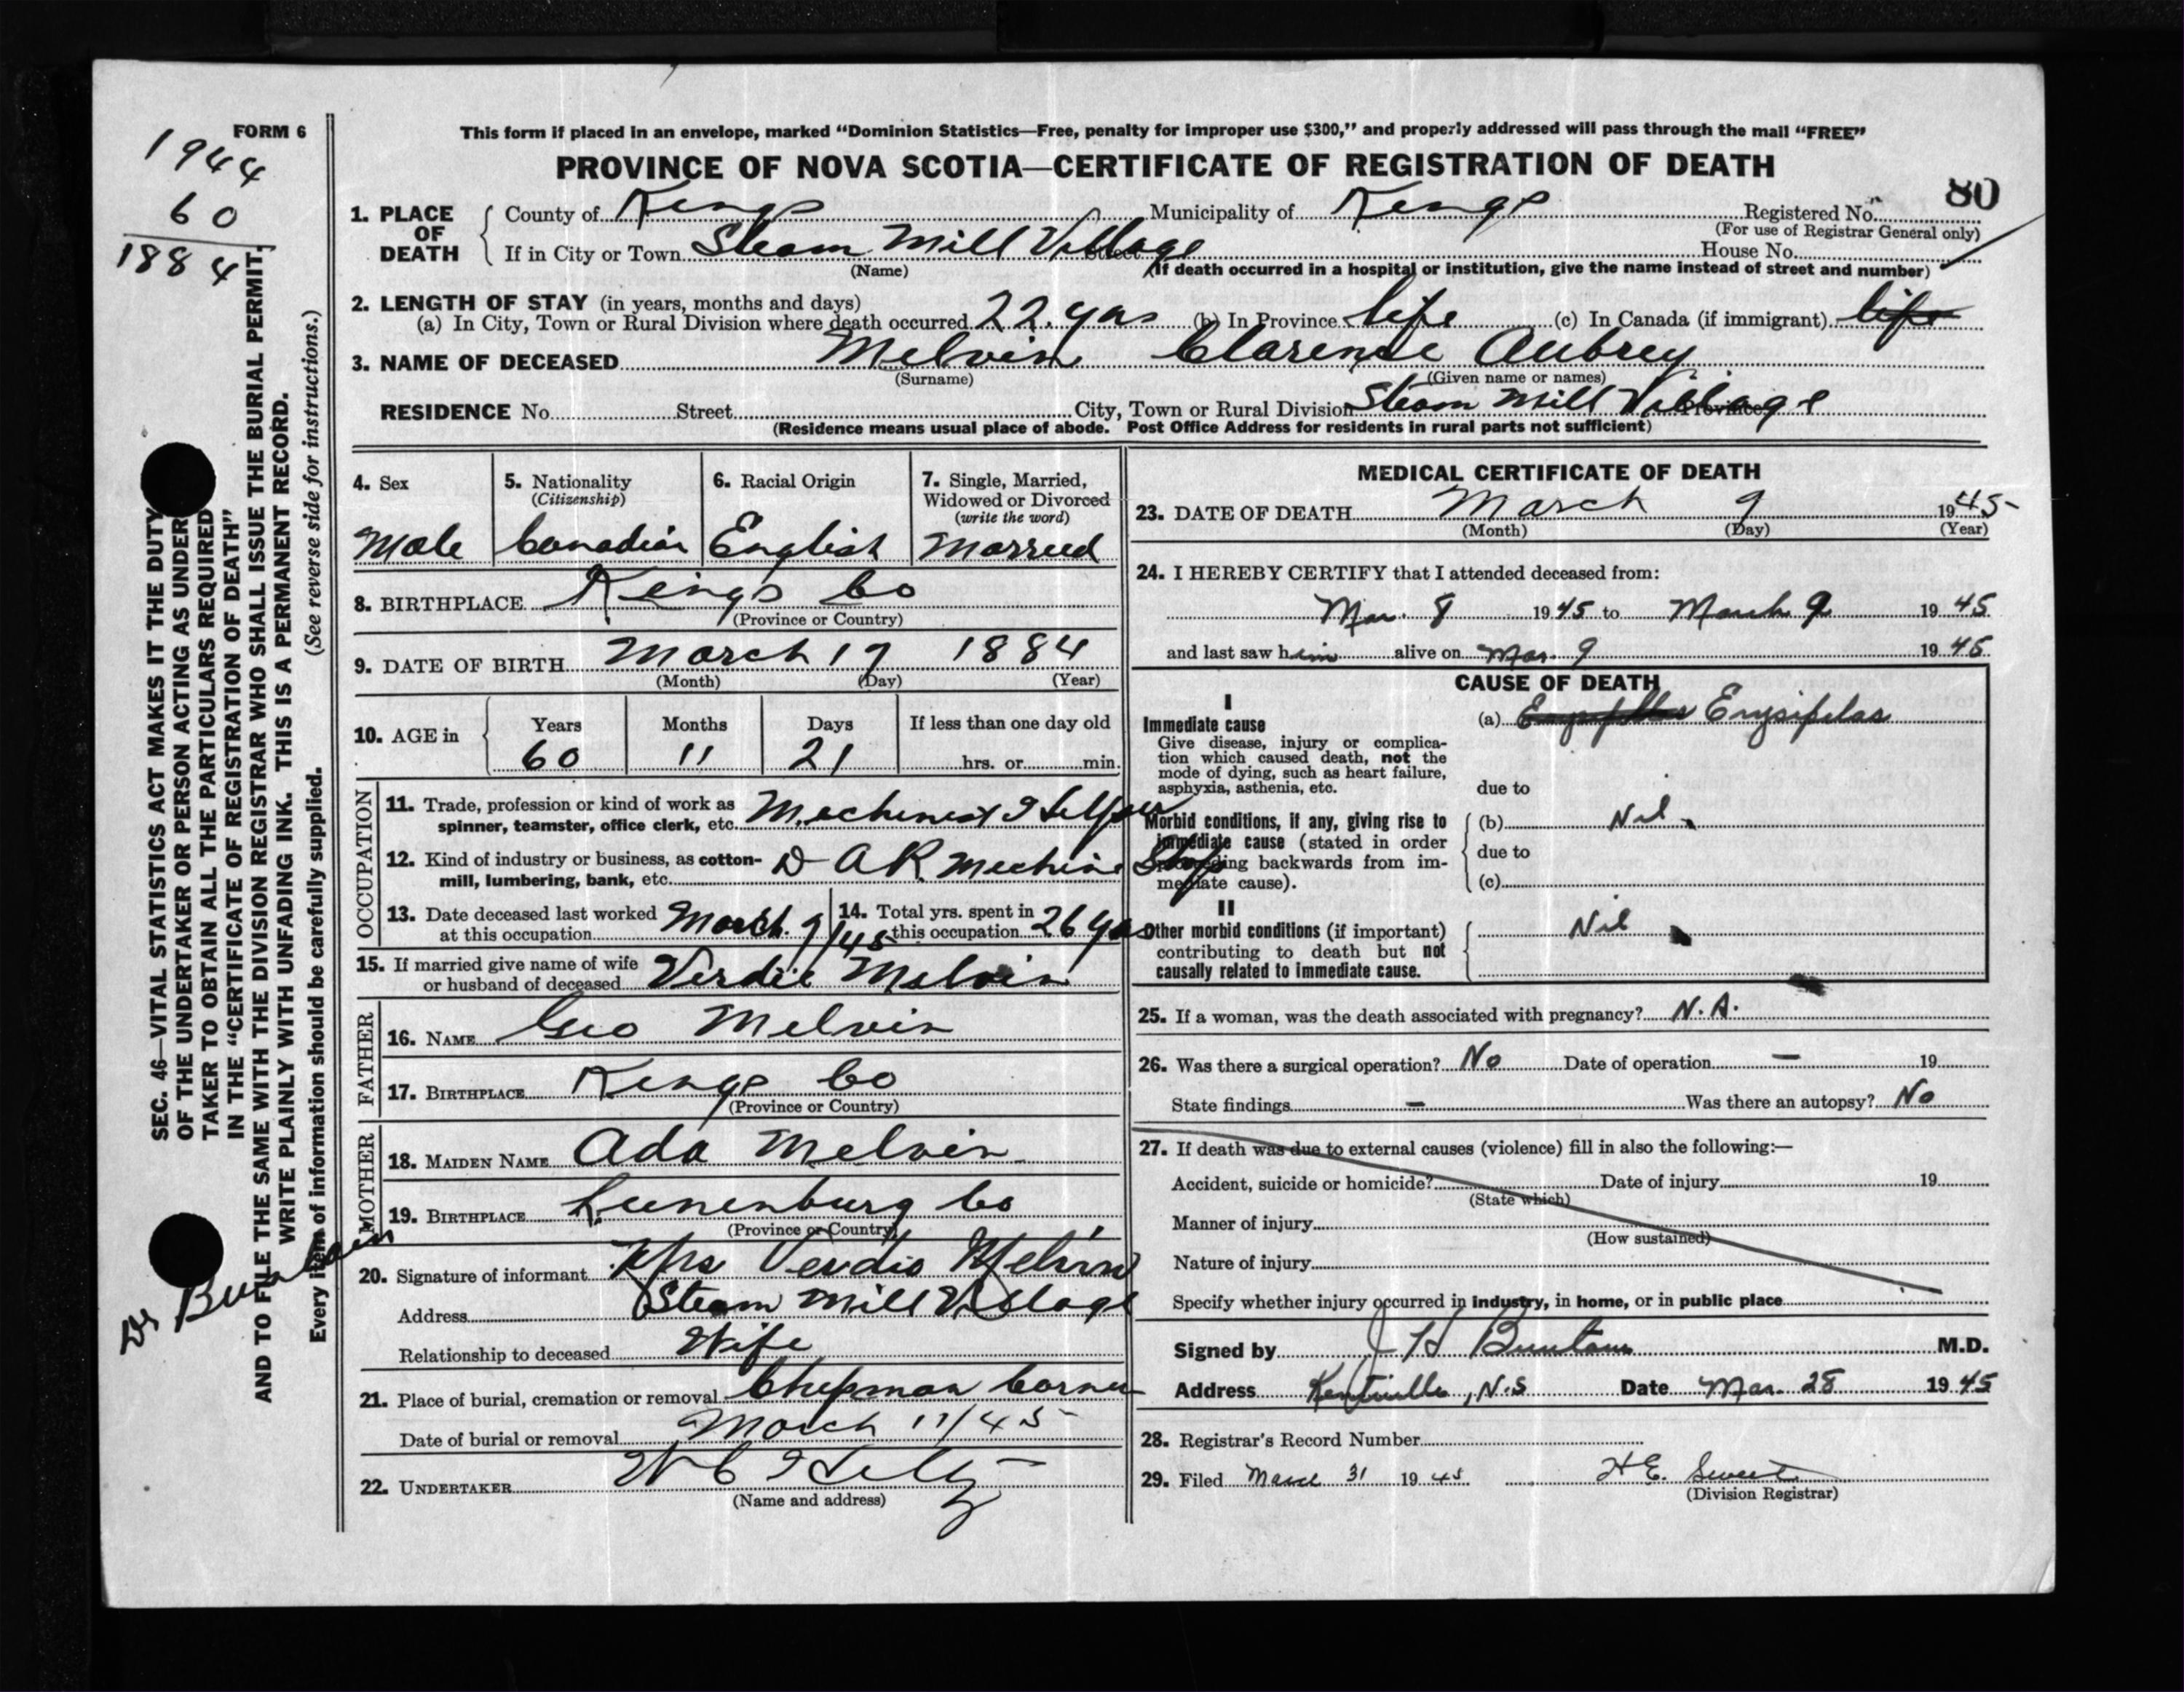 FORM 6
1944
60
1884
This form if placed in an envelope, marked "Dominion Statistics—Free, penalty for improper use $300," and properly addressed will pass through the mail "FREE"
PROVINCE OF NOVA SCOTIA—CERTIFICATE OF REGISTRATION OF DEATH
80
1. PLACE OF DEATH County of Kings Municipality of Kings Registered No.
(For use of Registrar General only)
If in City or Town Steam Mill Village Street House No.
(Name) (If death occurred in a hospital or institution, give the name instead of street and number)
2. LENGTH OF STAY (in years, months and days)
(a) In City, Town or Rural Division where death occurred 22 yrs (b) In Province life (c) In Canada (if immigrant) life
3. NAME OF DECEASED Melvin Clarence Aubrey
(Surname) (Given name or names)
RESIDENCE No. Street City, Town or Rural Division Steam Mill Village Province
(Residence means usual place of abode. Post Office Address for residents in rural parts not sufficient)
4. Sex
Male
5. Nationality
(Citizenship)
Canadian
6. Racial Origin
English
7. Single, Married,
Widowed or Divorced
(write the word)
Married
8. BIRTHPLACE Kings Co
(Province or Country)
9. DATE OF BIRTH March 17 1884
(Month) (Day) (Year)
10. AGE in Years Months Days If less than one day old
60 11 21 hrs. or min.
OCCUPATION
11. Trade, profession or kind of work as
spinner, teamster, office clerk, etc. Mechinest Helper
12. Kind of industry or business, as cotton-
mill, lumbering, bank, etc. D A R Mechine Shop
13. Date deceased last worked
at this occupation March 9/45
14. Total yrs. spent in
this occupation 26 yrs
15. If married give name of wife
or husband of deceased Verdie Melvin
FATHER
16. NAME Geo Melvin
17. BIRTHPLACE Kings Co
(Province or Country)
MOTHER
18. MAIDEN NAME Ada Melvin
19. BIRTHPLACE Lunenburg Co
(Province or Country)
20. Signature of informant Mrs Verdie Melvin
Address Steam Mill Village
Relationship to deceased Wife
21. Place of burial, cremation or removal Chipman Corner
Date of burial or removal March 11/45
22. UNDERTAKER
(Name and address)
MEDICAL CERTIFICATE OF DEATH
23. DATE OF DEATH March 9 1945
(Month) (Day) (Year)
24. I HEREBY CERTIFY that I attended deceased from:
Mar. 8 1945 to March 9 1945
and last saw him alive on Mar. 9 1945
CAUSE OF DEATH
I
Immediate cause
Give disease, injury or complica-
tion which caused death, not the
mode of dying, such as heart failure,
asphyxia, asthenia, etc.
(a) Erysipelas
due to
Morbid conditions, if any, giving rise to
immediate cause (stated in order
proceeding backwards from im-
mediate cause).
(b) Nil
due to
(c)
II
Other morbid conditions (if important)
contributing to death but not
causally related to immediate cause.
Nil
25. If a woman, was the death associated with pregnancy? N.A.
26. Was there a surgical operation? No Date of operation — 19
State findings — Was there an autopsy? No
27. If death was due to external causes (violence) fill in also the following:—
Accident, suicide or homicide? Date of injury 19
(State which)
Manner of injury
(How sustained)
Nature of injury
Specify whether injury occurred in industry, in home, or in public place
Signed by J H M.D.
Address Kentville, N.S Date Mar. 28 1945
28. Registrar's Record Number
29. Filed March 31 1945 H E. Sweet
(Division Registrar)
SEC. 46—VITAL STATISTICS ACT MAKES IT THE DUTY
OF THE UNDERTAKER OR PERSON ACTING AS UNDER
TAKER TO OBTAIN ALL THE PARTICULARS REQUIRED
IN THE "CERTIFICATE OF REGISTRATION OF DEATH"
AND TO FILE THE SAME WITH THE DIVISION REGISTRAR WHO SHALL ISSUE THE BURIAL PERMIT.
WRITE PLAINLY WITH UNFADING INK. THIS IS A PERMANENT RECORD.
Every item of information should be carefully supplied. (See reverse side for instructions.)